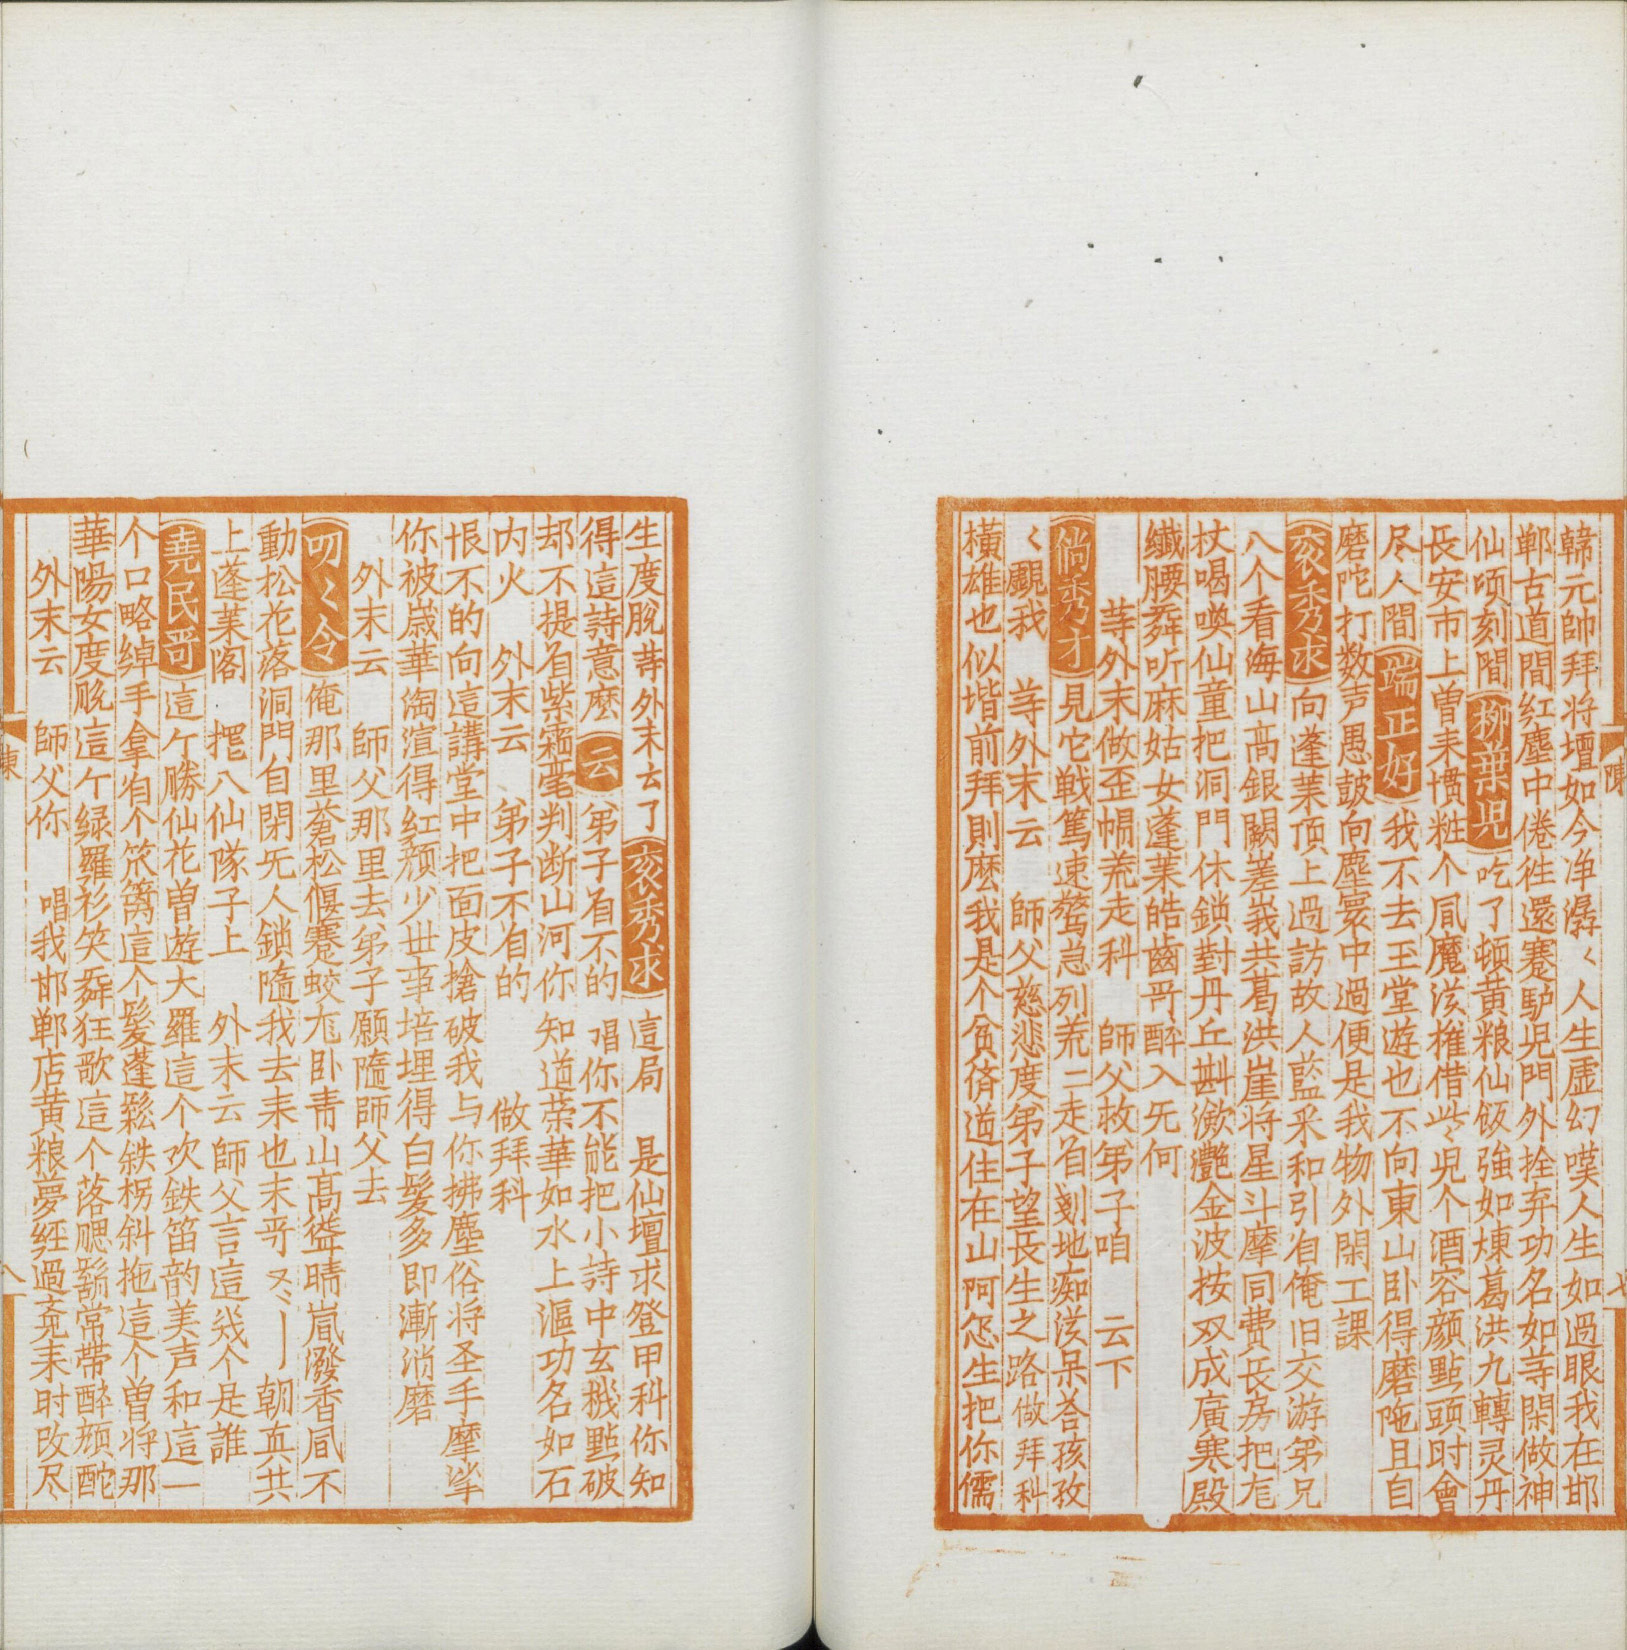 韓元帥拜将壇如今净潺〻人生虚幻嘆人生如過眼我在邯
郸古道間紅塵中倦徃還蹇驴児門外拴弃功名如䓁閑做神
仙顷刻間 柳葉児 吃了顿黄粮仙飯強如煉葛洪九轉灵丹
長安市上曽耒惯粧个風魔㳒権借此〻児个酒容颜點頭时會
尽人間 端正好 我不去玉堂遊也不向東山卧得磨陁且自
磨陀打数声愚皷向塵寰中過便是我物外閑工課
衮秀求 向蓬莱頂上過訪故人藍采和引着俺旧交游弟兄
八个看海山高銀闕嵳峩共葛洪崖将星斗摩同费長房把尨
杖喝喚仙童把洞門休鎖對丹丘斟潋灧金波按双成廣寒殿
纎腰舜听麻姑女蓬莱皓齒哥醉入旡何
䓁外末做歪㡌荒走科 師父救弟子咱 云下
倘秀才 見它戦篤速驚急列荒二走着剗地痴㳒呆荅孩孜
〻覷我 䓁外末云 師父慈悲度弟子望長生之路做拜科
橫雄也似堦前拜則麽我是个貧侪道住在山阿怎生把你儒
生度脫䓁外末去了 衮秀求 這局 是仙壇求登甲科你知
得這詩意麽 云 弟子省不的 唱你不能把小詩中玄機㸃破
却不提着紫霜毫判断山河你 知道荣華如水上漚功名如石
内火 外末云 弟子不省的 做拜科
恨不的向這講堂中把面皮搶破我与你拂塵俗将圣手摩挲
你被歲華淘渲得紅颜少世亊培埋得白髮多即漸消磨
外末云 師父那里去弟子願隨師父去
叨〻令 俺那里蒼松偃蹇蛟尨卧青山高㳬晴嵐潑香風不
動松花落洞門自閉旡人鎖隨我去耒也末哥 又〻｜ 朝真共
上蓬莱閣 擺八仙隊子上 外末云師父言這㡬个是誰
堯民哥 這个勝仙花曽遊大羅這个吹鉄笛韵美声和這一
个口略綽手拿着个笊篱這个髮蓬鬆鉄柺斜拖這个曽将那
華陽女度脱這个緑羅衫笑舜狂歌這个落腮鬍常带醉颜酡
外末云 師父你 唱我邯郸店黄粮夢經過䘚耒时改尽
陳 七
陳 八